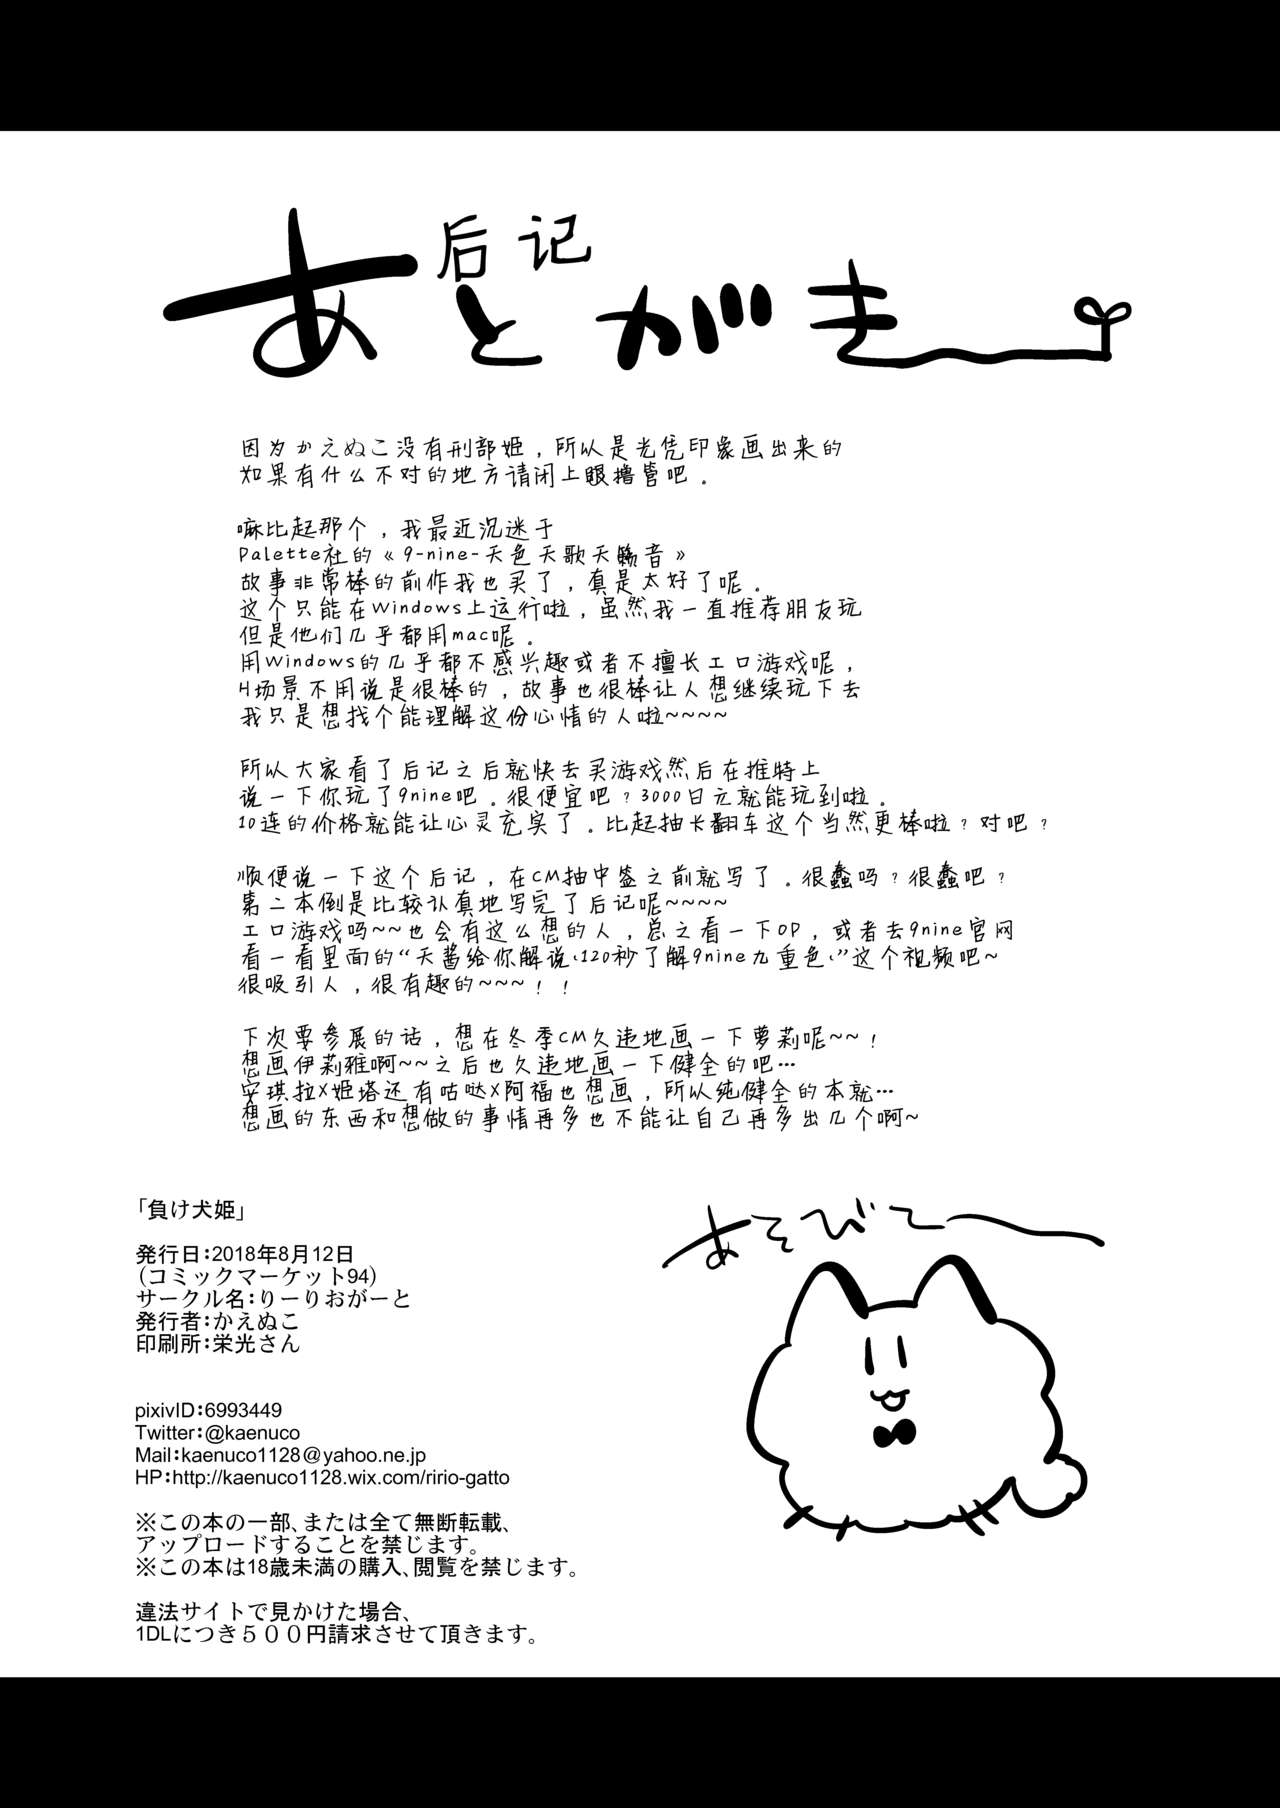 后记
あとがき
因为かえぬこ没有刑部姬，所以是光凭印象画出来的
如果有什么不对的地方请闭上眼撸管吧。
嘛比起那个，我最近沉迷于
Palette社的《9-nine-天色天歌天籁音》
故事非常棒的前作我也买了，真是太好了呢。
这个只能在Windows上运行啦，虽然我一直推荐朋友玩
但是他们几乎都用mac呢。
用Windows的几乎都不感兴趣或者不擅长工口游戏呢，
H场景不用说是很棒的，故事也很棒让人想继续玩下去
我只是想找个能理解这份心情的人啦~~~~
所以大家看了后记之后就快去买游戏然后在推特上
说一下你玩了9nine吧。很便宜吧？3000日元就能玩到啦。
10连的价格就能让心灵充实了。比起抽卡翻车这个当然更棒啦？对吧？
顺便说一下这个后记，在CM抽中签之前就写了。很蠢吗？很蠢吧？
第二本倒是比较认真地写完了后记呢~~~~
工口游戏吗~~也会有这么想的人，总之看一下OP，或者去9nine官网
看一看里面的“天酱给你解说、120秒了解9nine九重色、”这个视频吧~
很吸引人，很有趣的~~~！！
下次要参展的话，想在冬季CM久违地画一下萝莉呢~~！
想画伊莉雅啊~~之后也久违地画一下健全的吧…
安琪拉X姬塔还有咕哒X阿福也想画，所以纯健全的本就…
想画的东西和想做的事情再多也不能让自己再多出几个啊~
「負け犬姫」
発行日：2018年8月12日
（コミックマーケット94）
サークル名：りーりおがーと
発行者：かえぬこ
印刷所：栄光さん
pixivID：6993449
Twitter：@kaenuco
Mail：kaenuco1128@yahoo.ne.jp
HP：http://kaenuco1128.wix.com/ririo-gatto
※この本の一部、または全て無断転載、
アップロードすることを禁じます。
※この本は18歳未満の購入、閲覧を禁じます。
違法サイトで見かけた場合、
1DLにつき５００円請求させて頂きます。
あそびてー